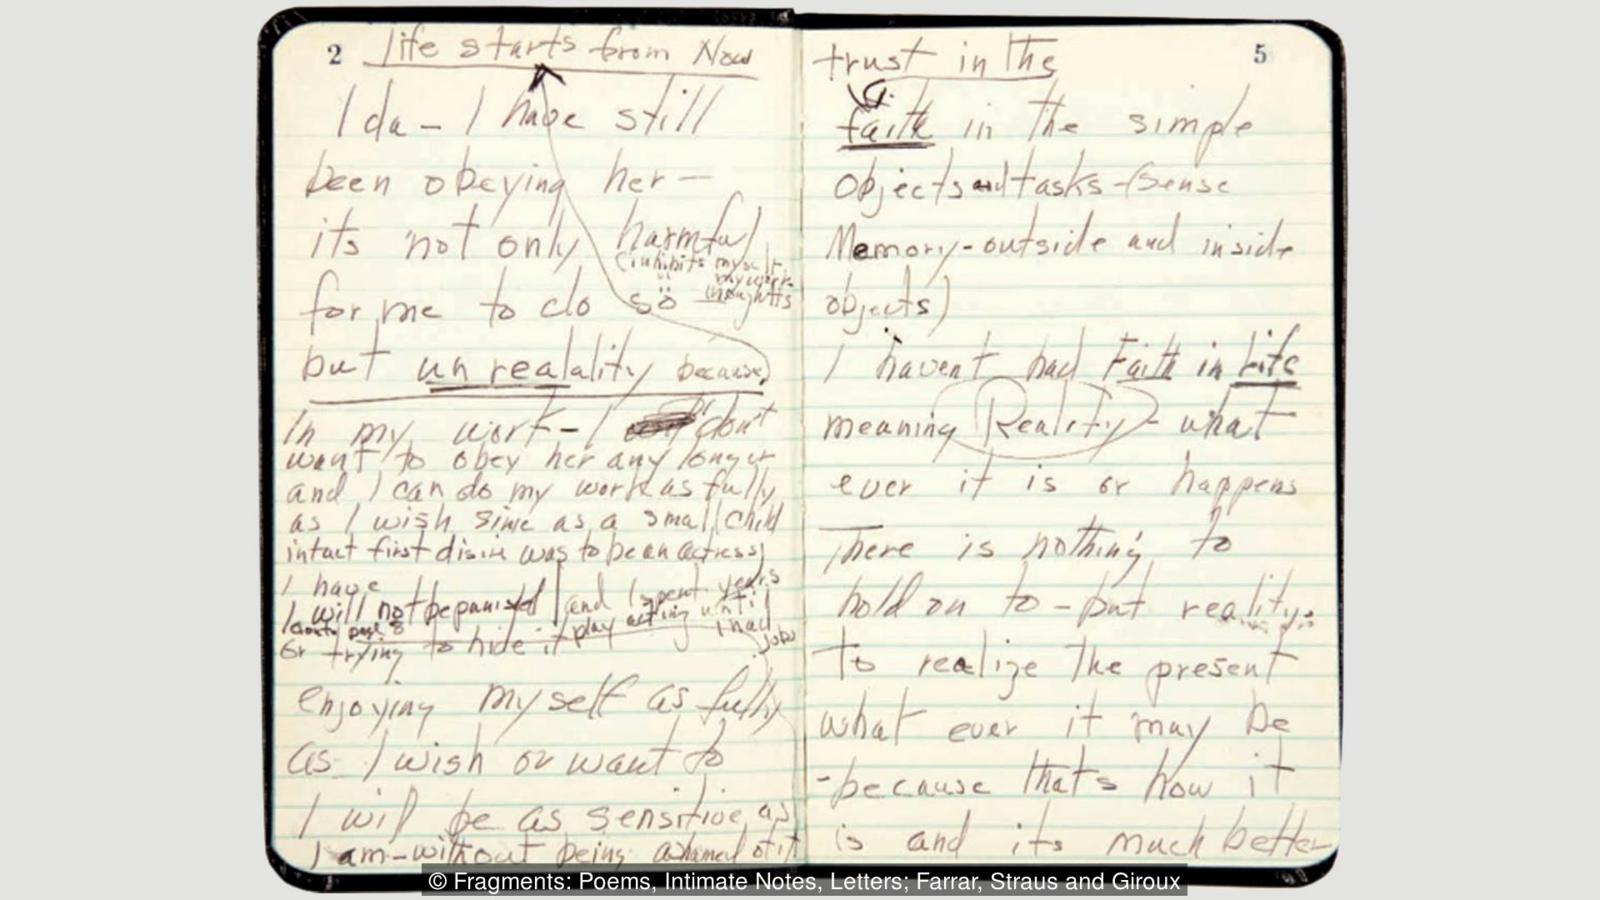 2
life starts from Now
Ida – I have still
been obeying her –
its not only harmful
(inhibits myself
my work
thoughts
for me to do so
but unrealality because)
In my work – I don't
want to obey her any longer
and I can do my work as fully
as I wish since as a small child
intact first disire was to be an actress)
I have
I will not be punished and I spent years
cont page 8 play acting until
or trying to hide it I had
jobs
enjoying myself as fully
as I wish or want to
I will be as sensitive as
I am – without being ashamed of it
5
trust in the
faith in the simple
objects and tasks – (sense
Memory – outside and inside
objects)
I haven't had Faith in Life
meaning Reality – what
ever it is or happens
There is nothing to
hold on to – but reality:
To realize the present
what ever it may be
- because that's how it
is and its much better
© Fragments: Poems, Intimate Notes, Letters; Farrar, Straus and Giroux